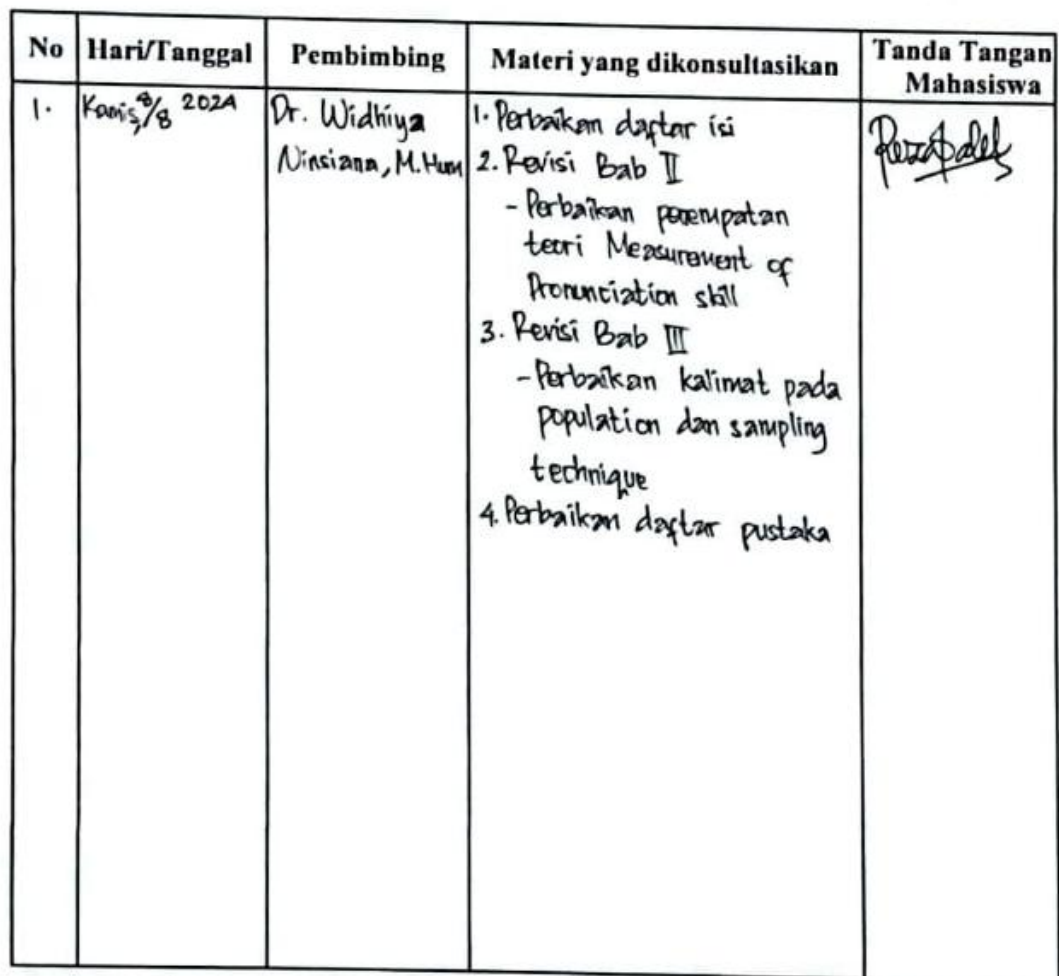 No Hari/Tanggal Pembimbing Materi yang dikonsultasikan Tanda Tangan Mahasiswa
1. Kamis, 8/8 2024 Dr. Widhiya Ninsiana, M.Hum
1. Perbaikan daftar isi
2. Revisi Bab II
- Perbaikan penempatan
teori Measurement of
Pronunciation skill
3. Revisi Bab III
- Perbaikan kalimat pada
population dan sampling
technique
4. Perbaikan daftar pustaka